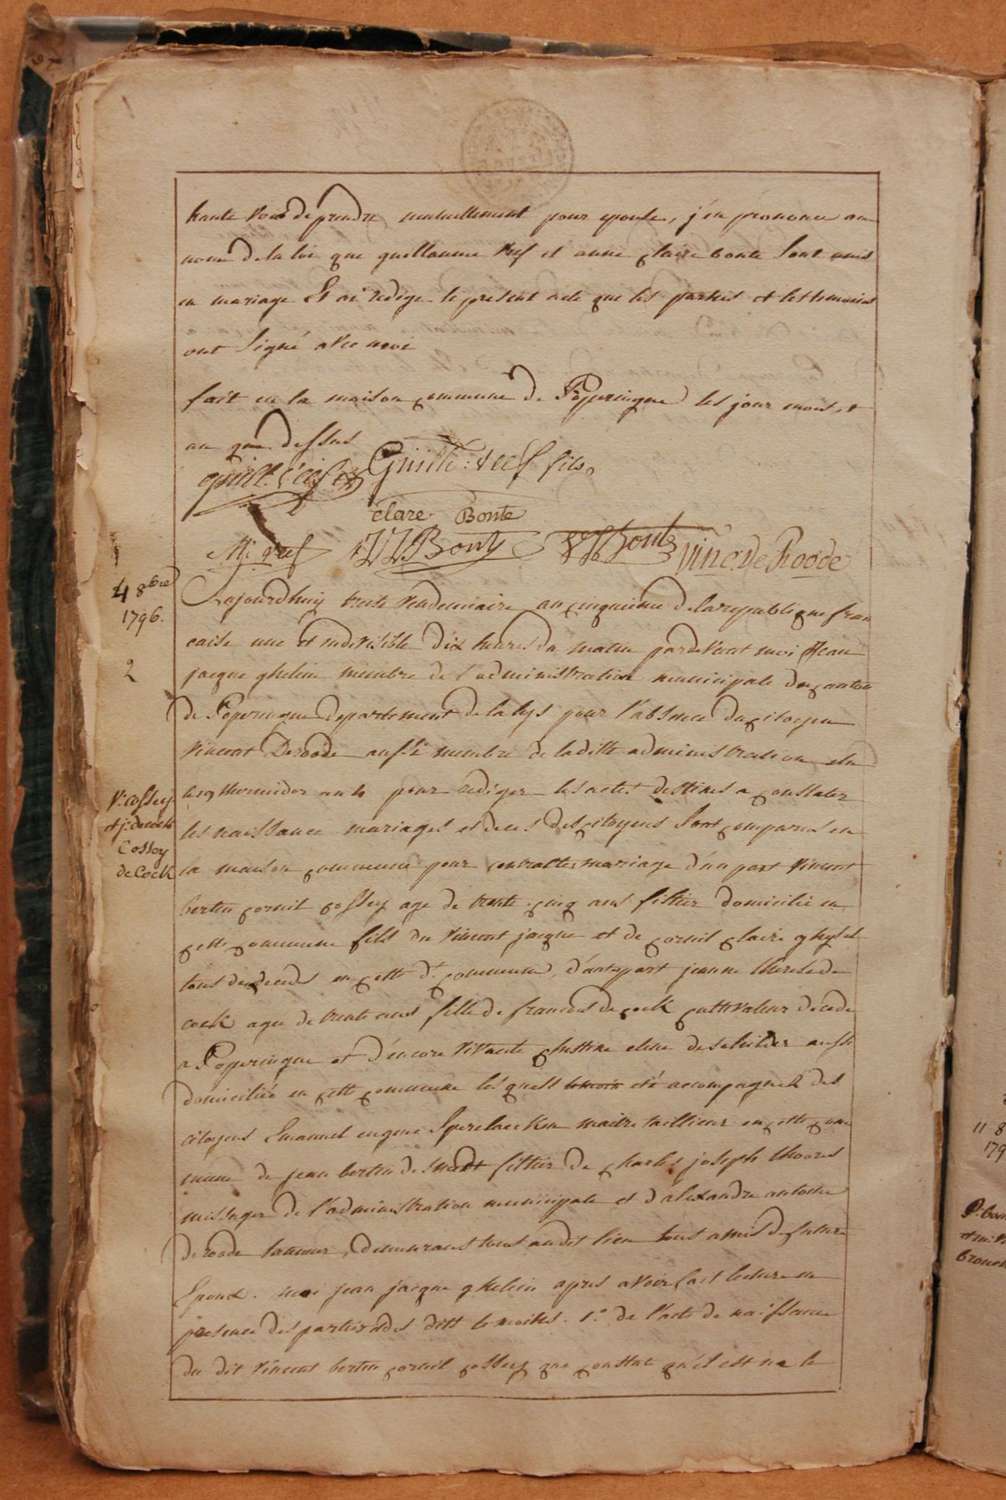 haute voix de prendre mutuellement pour epouse, j'en prononce au
nom de la loi que guillaume Vief et anne claire bonte sont unis
en mariage Et ai redige le present acte que les parties et les temoins
ont signé avec moi
fait en la maison commune de Poperingue les jour mois et
an que dessus
Guille: fils
clare Bonte
Bonte
Bonte
Vinc. De Roode
4 8bre
1796.
2
aujourdhuij trente vendemiaire an cinquieme de la republique fran
caise une et indivisible dix heures du matin pardevant moi Jean
jacque ghelein membre de l'administration municipale du canton
de Poperingue departement de la lys pour l'absence du citoyen
Vincent Deroode aussi membre de la ditte administration elu
le 19 thermidor an 4 pour rediger les actes destines a constater
les naissance mariages et deces des citoyens sont comparus en
la maison commune pour contracter mariage d'un part Vincent
bertin corneil cossey age de trente cinq ans domicilié en
cette commune fils du Vincent jacque et de corneil claire ghysel
tous decedes en cette dt. commune, d'autrepart jeanne therese de
cock agee de trente ans fille de francois de cock cultivateur decede
a Poperingue et d'encore vivante aussi
domiciliée en cette commune lesquels etoient accompagnes des
citoyens Emanuel eugene maitre tailleur en cette com
mune de jean bertin desmedt de charles joseph thoores
messager de l'administration municipale et d'alexandre antoine
deroode tanneur, demeurans tous audit lieu tous amis de future
Epoux. moi jean jacque ghelein apres avoir fait lecture en
presence des parties et des dits temoins. 1° de l'acte de naissance
du dit vincent bertin corneil cossey que constate qu'il est né le
V: cossey
et j: decock
Cossey
de Cock
11 8
179